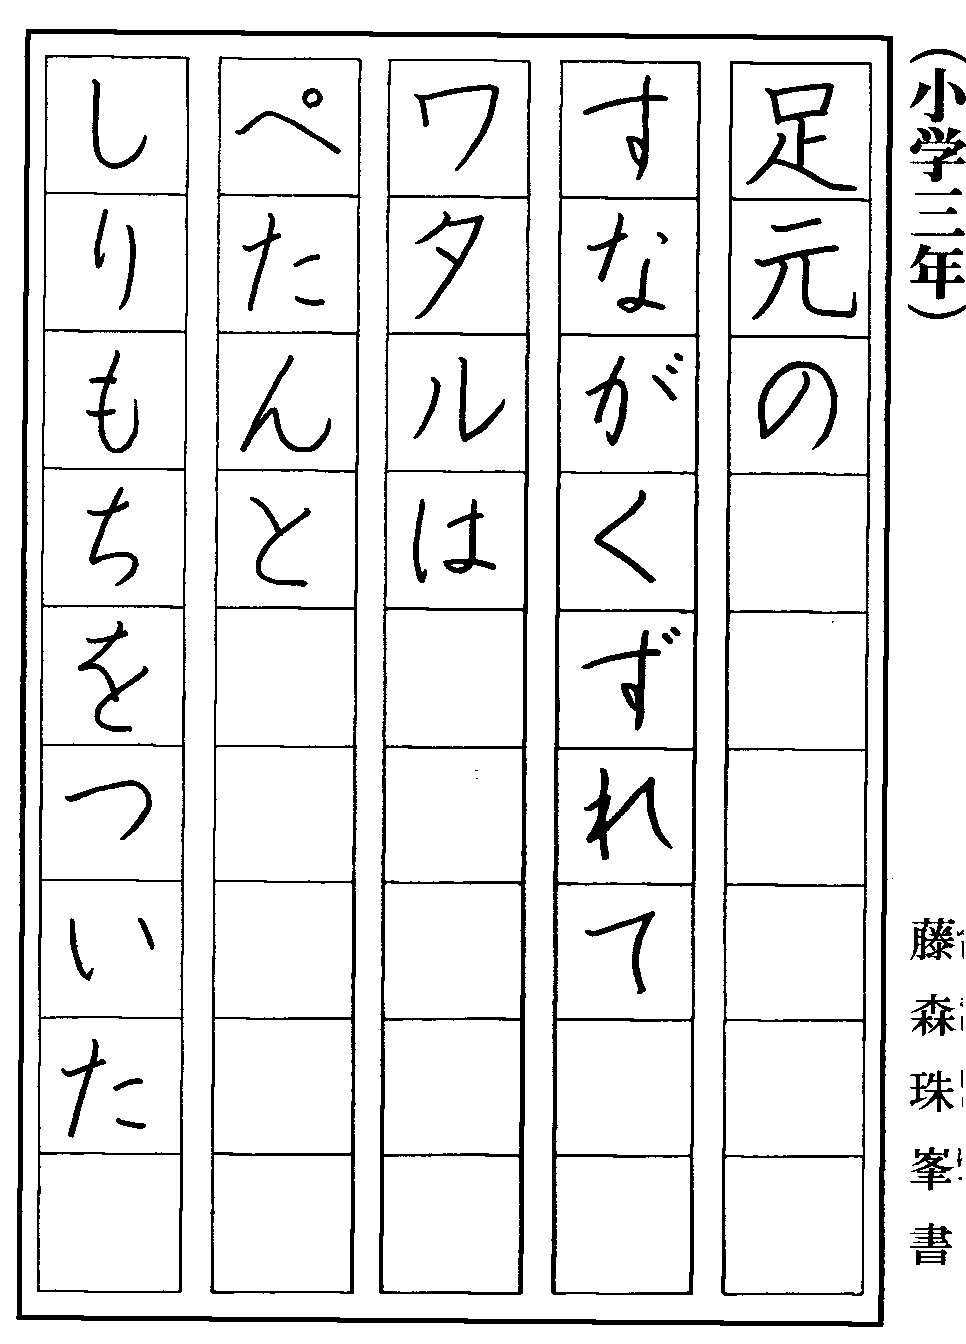 （小学三年）
藤森珠峯書
足元の
すながくずれて
ワタルは
ぺたんと
しりもちをついた